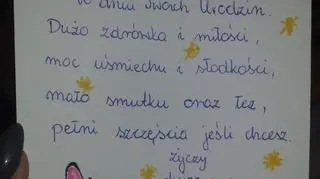 w dniu Twoich Urodzin.
Dużo zdrówka i miłości,
moc uśmiechu i słodkości,
mało smutku oraz łez,
pełni szczęścia jeśli chcesz.
życzy